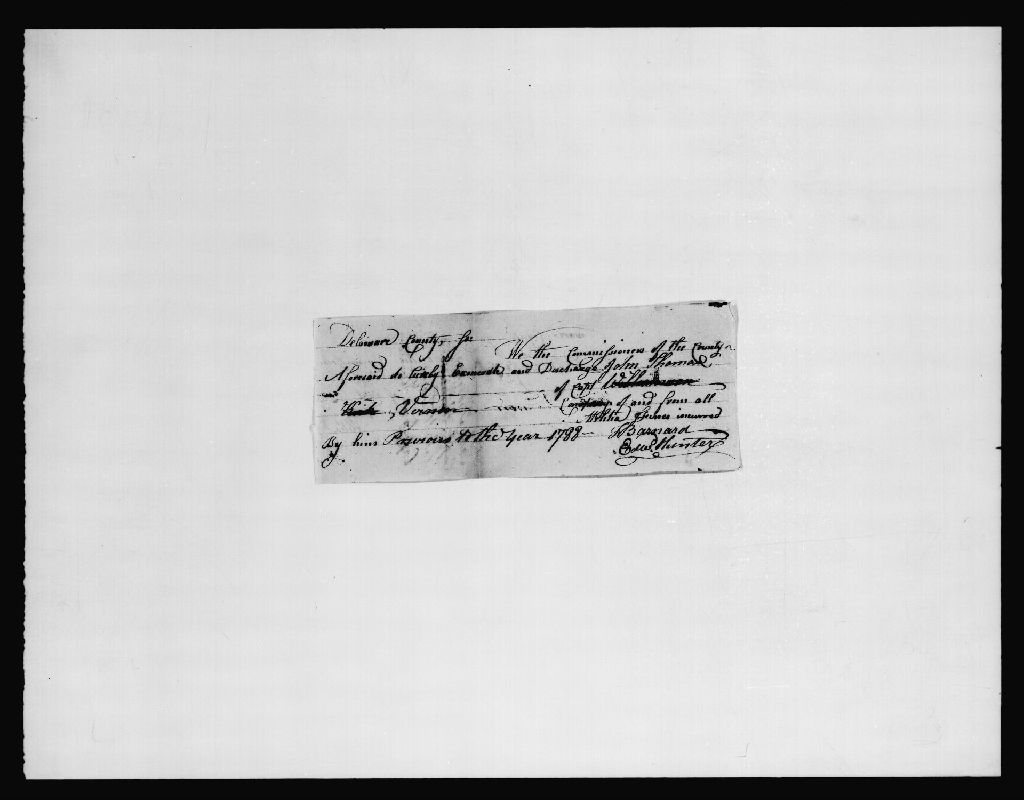 Delawar County, ss
We the Commissioners of the County
Aforesaid do hereby Exonorate and Discharge John Thomas
of Capt Williamson
Vernon
Company of and from all
Militia fines incurred
By him Previous to the Year 1788
J Barnard
Edwd Hunter